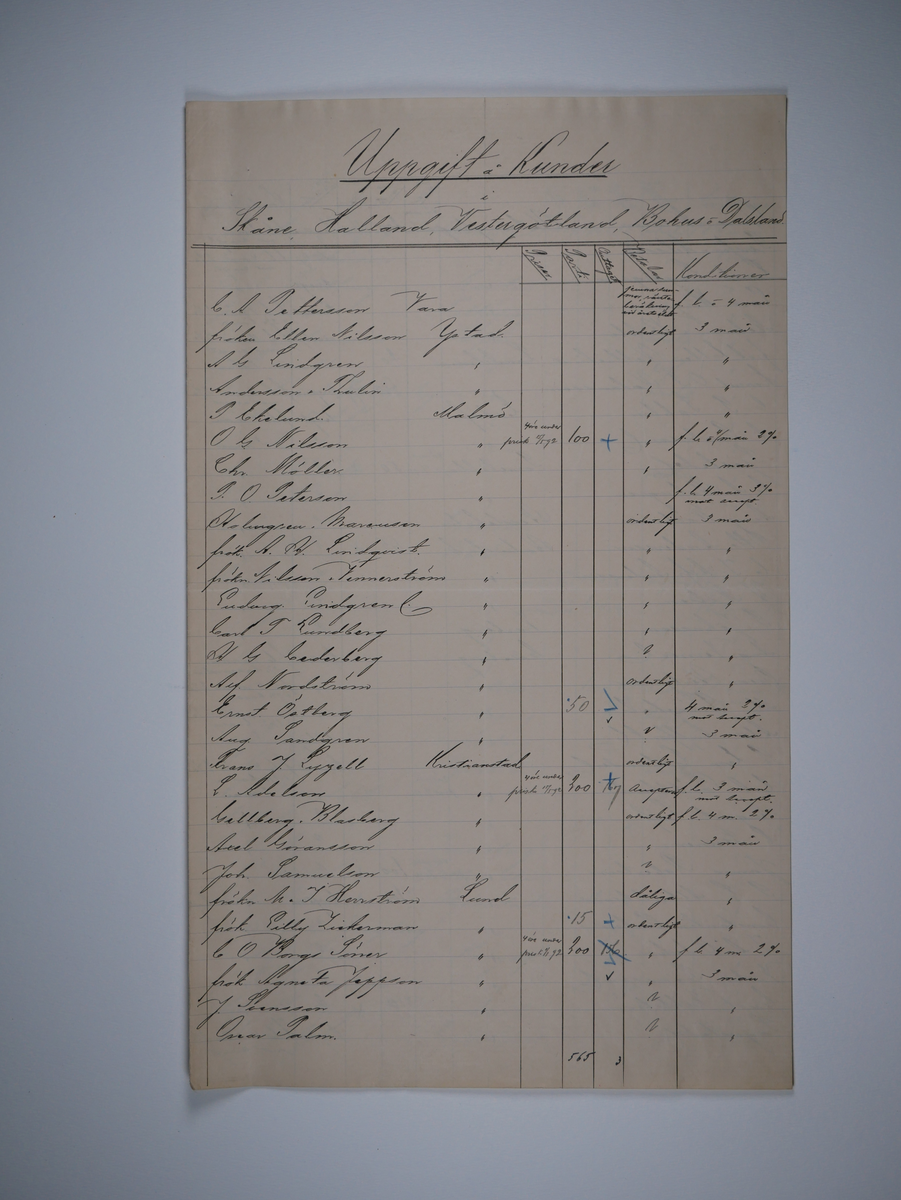 Uppgift å Kunder
i
Skåne, Halland, Vestergötland, Bohus- o Dalsland
Priser Parti Betalar Konditioner
C. A. Pettersson Vara f. b. 4 mån
fröken Ellen Nilsson Ystad. ordentligt 3 mån
A G Lindgren " " "
Andersson & Thulin " " "
P Ekelund Malmö " "
O G Nilsson " 100 + " f. b. mån 2%
Chr. Möller " " 3 mån
P. O Peterson " f. b. 4 mån 3%
mot accept
Holmgren Marcuson " ordentligt 3 mån
frök. A. M. Lindqvist. " " "
frökn Nilsson Tennerström " " "
Ludvig Lindgren " " "
Carl F Lundberg " " "
G Cederberg " ? "
Alf. Nordström " ordentligt "
Ernst Östberg " 50 " 4 mån 2%
mot accept.
Aug Sandgren " 3 mån
Frans J Lyzell Kristianstad ordentligt "
L. Adelson " 300 Accepterar f. b. 3 mån
mot accept.
Cellberg Blasberg " ordentligt f b. 4 m. 2%
Axel Göransson " " 3 mån
Joh. Samuelson " ? "
frökn M. J Herrström Lund dåliga "
frök Cilly Zickerman " 15 + ordentligt "
C O Borgs Söner " 300 " f b 4 m 2%
frök Agneta Jeppson " " 3 mån
J Svensson " ? "
Oscar Palm. " ? "
565 3